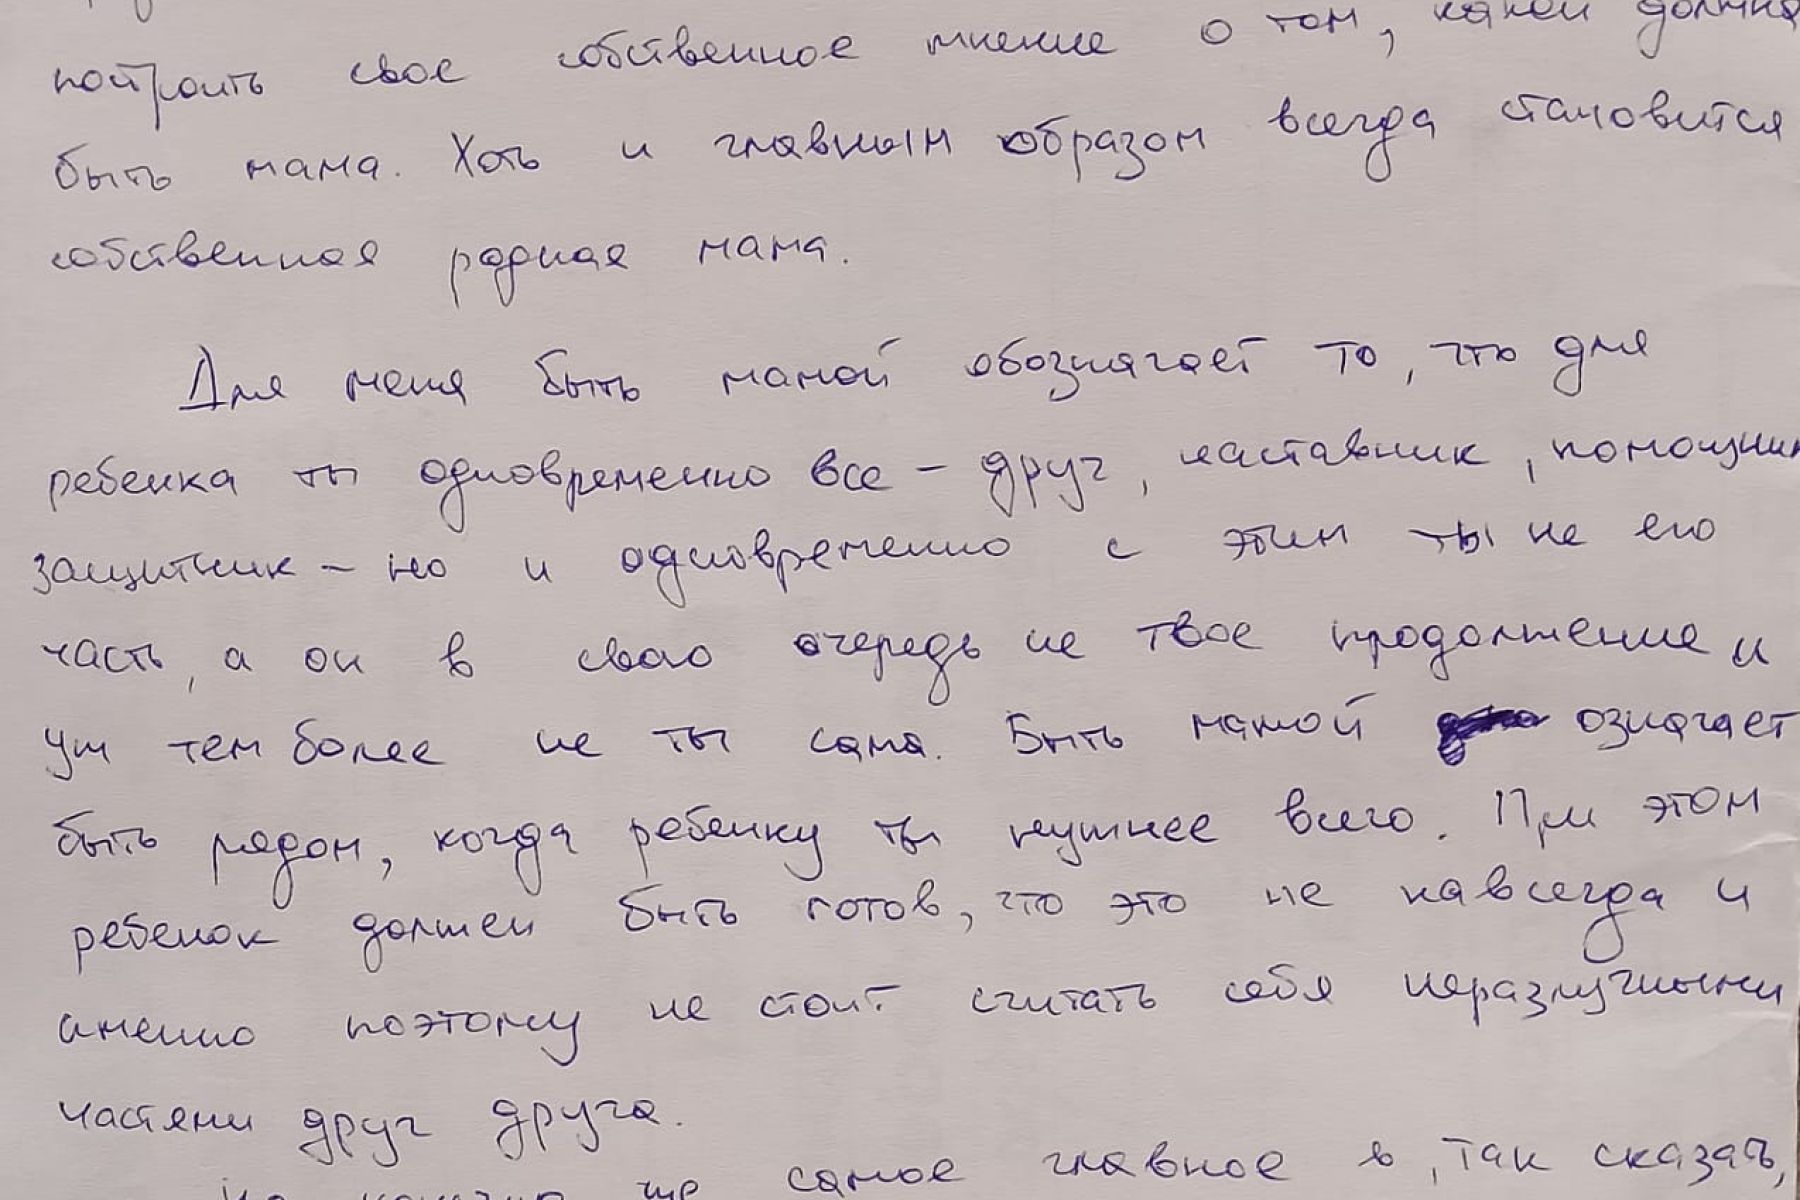 построить свое собственное мнение о том, какой должна
быть мама. Хоть и главным образом всегда становится
собственная родная мама.
Для меня быть мамой обозначает то, что для
ребенка ты одновременно все – друг, наставник, помощник
защитник – но и одновременно с этим ты не его
часть, а он в свою очередь не твое продолжение и
уж тем более не ты сама. Быть мамой означает
быть рядом, когда ребенку ты нужнее всего. При этом
ребенок должен быть готов, что это не навсегда и
именно поэтому не стоит считать себя неразлучными
частями друг друга.
Но конечно же самое главное в, так сказать,